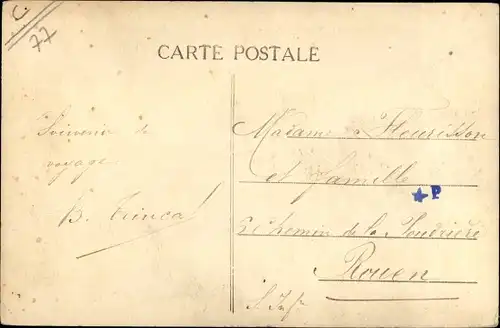 C
77
CARTE POSTALE
Souvenir de
voyage
B. Trinca
Madame Fleurisson
et famille
P
chemin de la Poudrière
Rouen
S. Infre